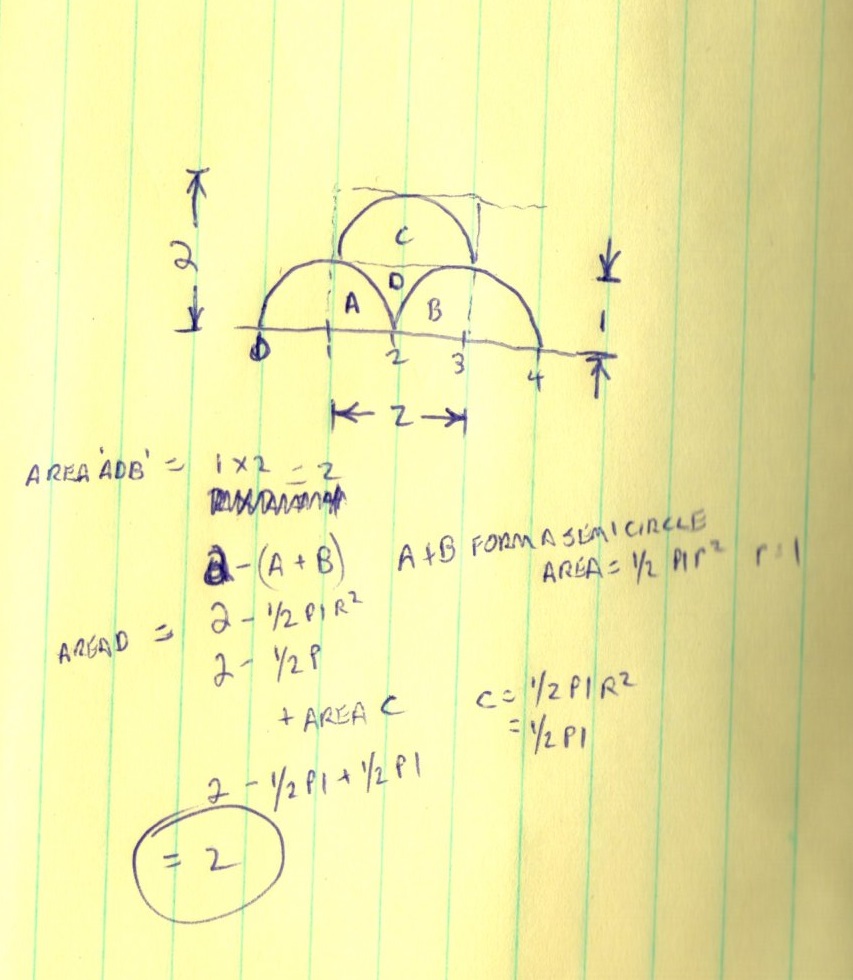 2
C
D
A B
1
0 1 2 3 4
2
AREA 'ADB' = 1 X 2 = 2
2 - (A + B) A+B FORM A SEMICIRCLE
AREA = 1/2 PI r² r = 1
AREA D = 2 - 1/2 PI R²
2 - 1/2 P
+ AREA C C = 1/2 PI R²
= 1/2 PI
2 - 1/2 PI + 1/2 PI
= 2